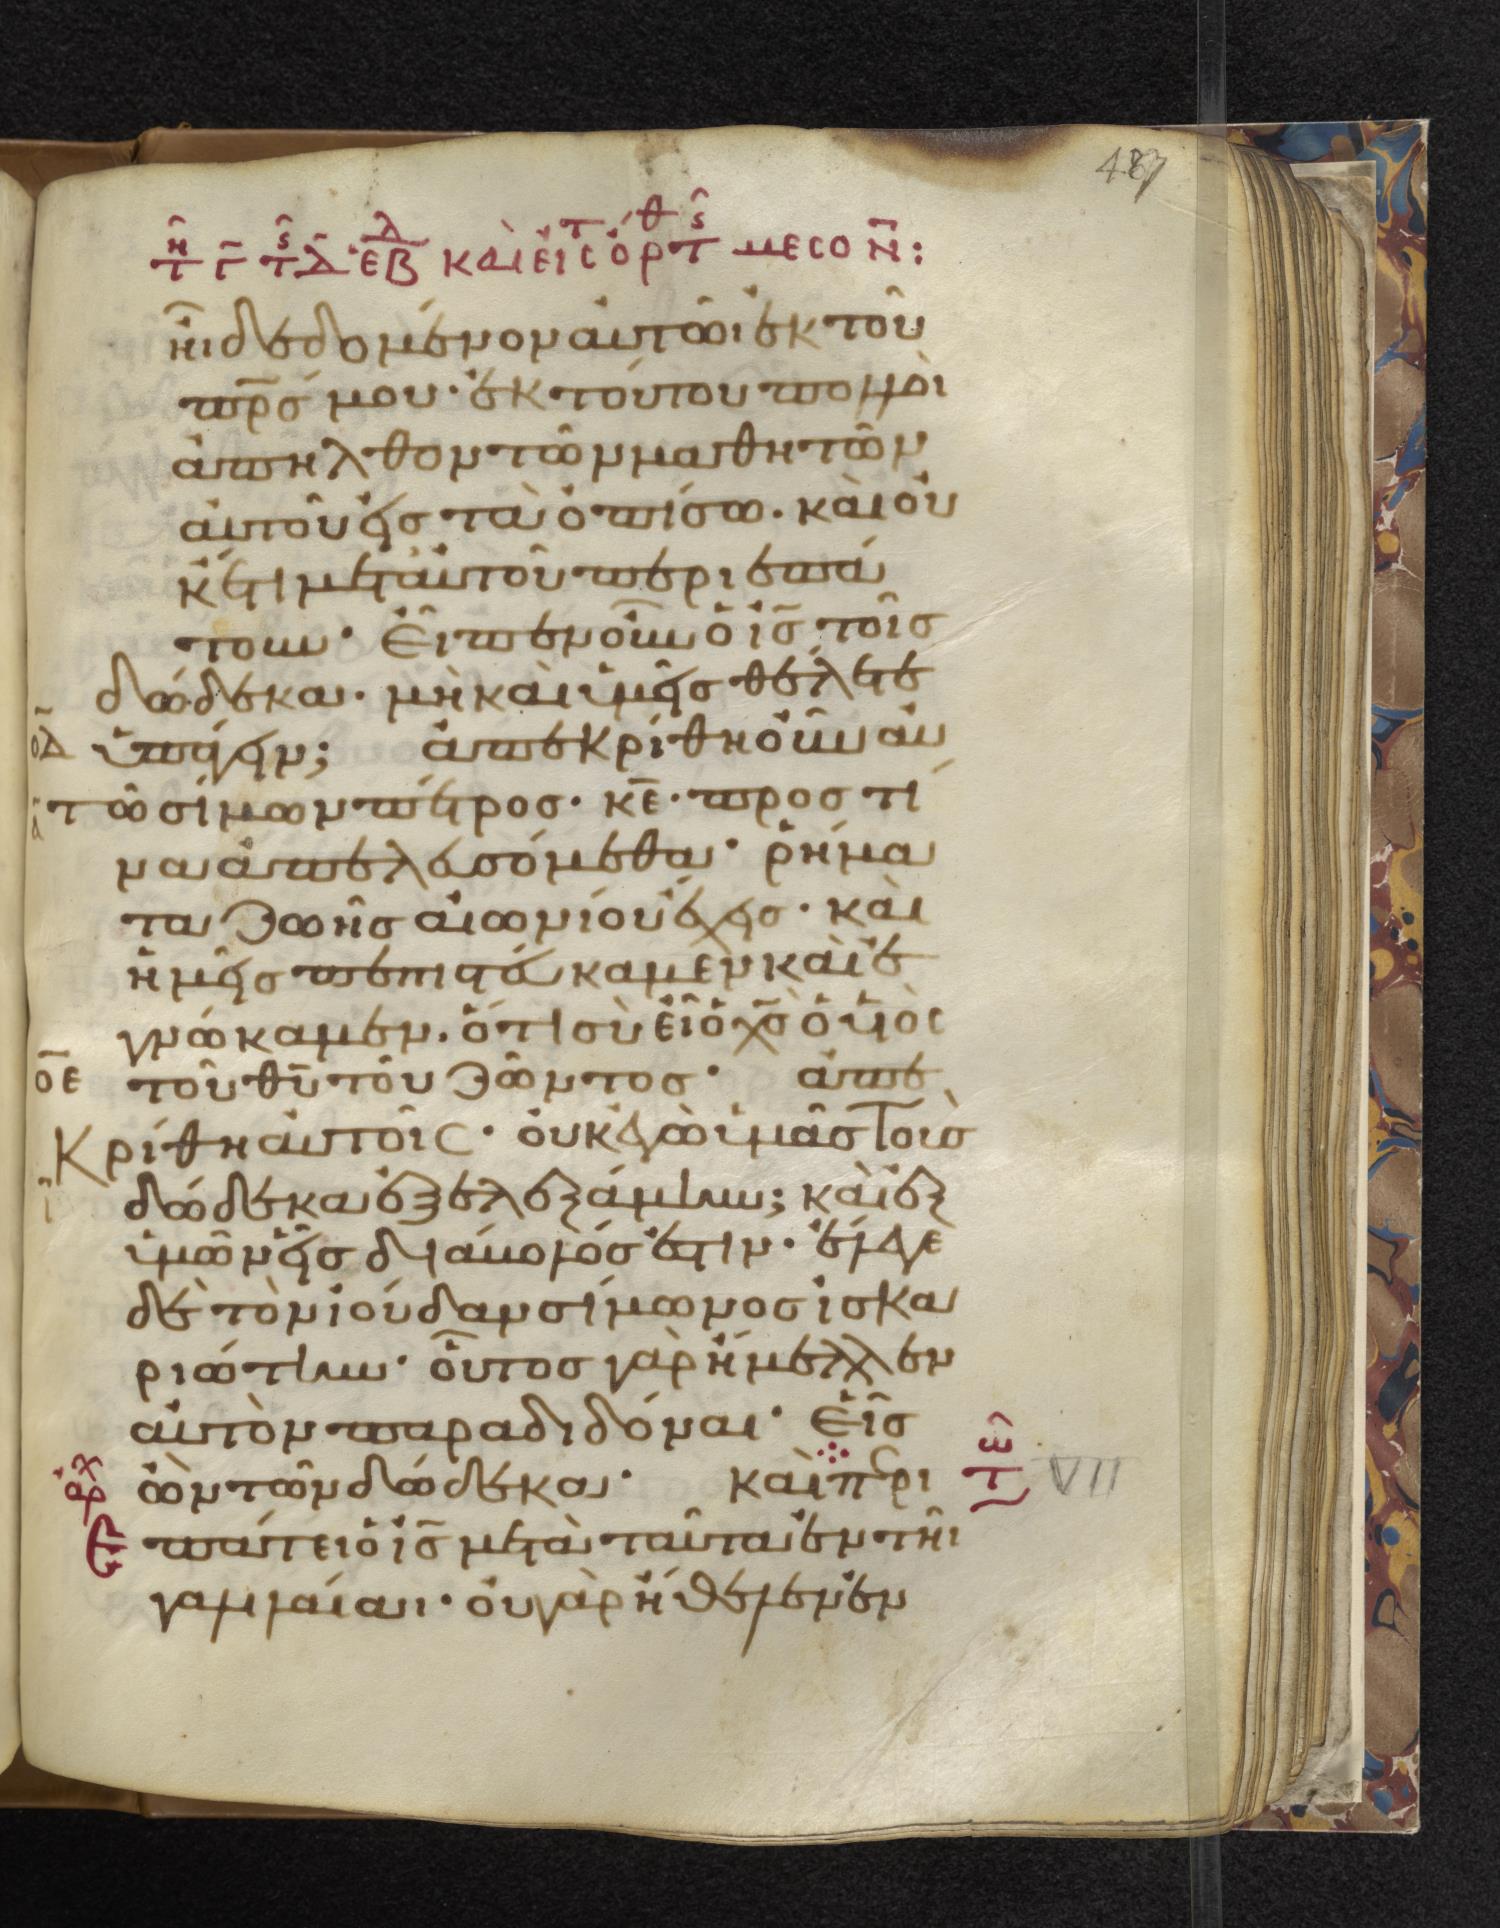 487
τῆ Γ τς Δ ἑβδ καὶ εἰς ὀρθτ τς μεσον:
ἦι δεδομένον αὐτῶι ἐκ τοῦ
πρσ μου· ἐκ τούτου πολλοὶ
ἀπῆλθον τῶν μαθητῶν
αὐτοῦ εἰς τὰ ὀπίσω. καὶ οὐ
κέτι μετ' αὐτοῦ περιεπά
τουν· Εἶπεν οὖν ὁ ισ τοῖς
δώδεκα· μὴ καὶ ὑμεῖς θέλετε
ΟΔ ὑπάγειν; ἀπεκρίθη οὖν αὐ
τῶ σίμων πέτρος· κε· προς τί
να ἀπελευσόμεθα· ῥήμα
τα ζωῆς αἰωνίου ἔχεις· καὶ
ἡμεῖς πεπιστεύκαμεν καὶ ἐ
γνώκαμεν. ὅτι σὺ εἶ ὁ χσ ὁ υἱὸς
ΟΕ τοῦ θυ τοῦ ζῶντος· ἀπε
Κρίθη αὐτοῖς· οὐκ ἐγὼ ὑμᾶς τοὺς
δώδεκα ἐξελεξάμην; καὶ ἐξ
ὑμῶν εἷς διάβολός ἐστιν· ἔλεγε
δὲ τὸν ἰούδαν σίμωνος ἰσκα
ριώτην· οὗτος γὰρ ἤμελλεν
αὐτὸν παραδιδόναι· Εἷς
ἀρχ ὢν τῶν δώδεκα· καὶ περι τε VII
πάτει ὁ ισ μετὰ ταῦτα ἐν τῆι
γαλιλαίαι· οὐ γὰρ ἤθελεν ἐν